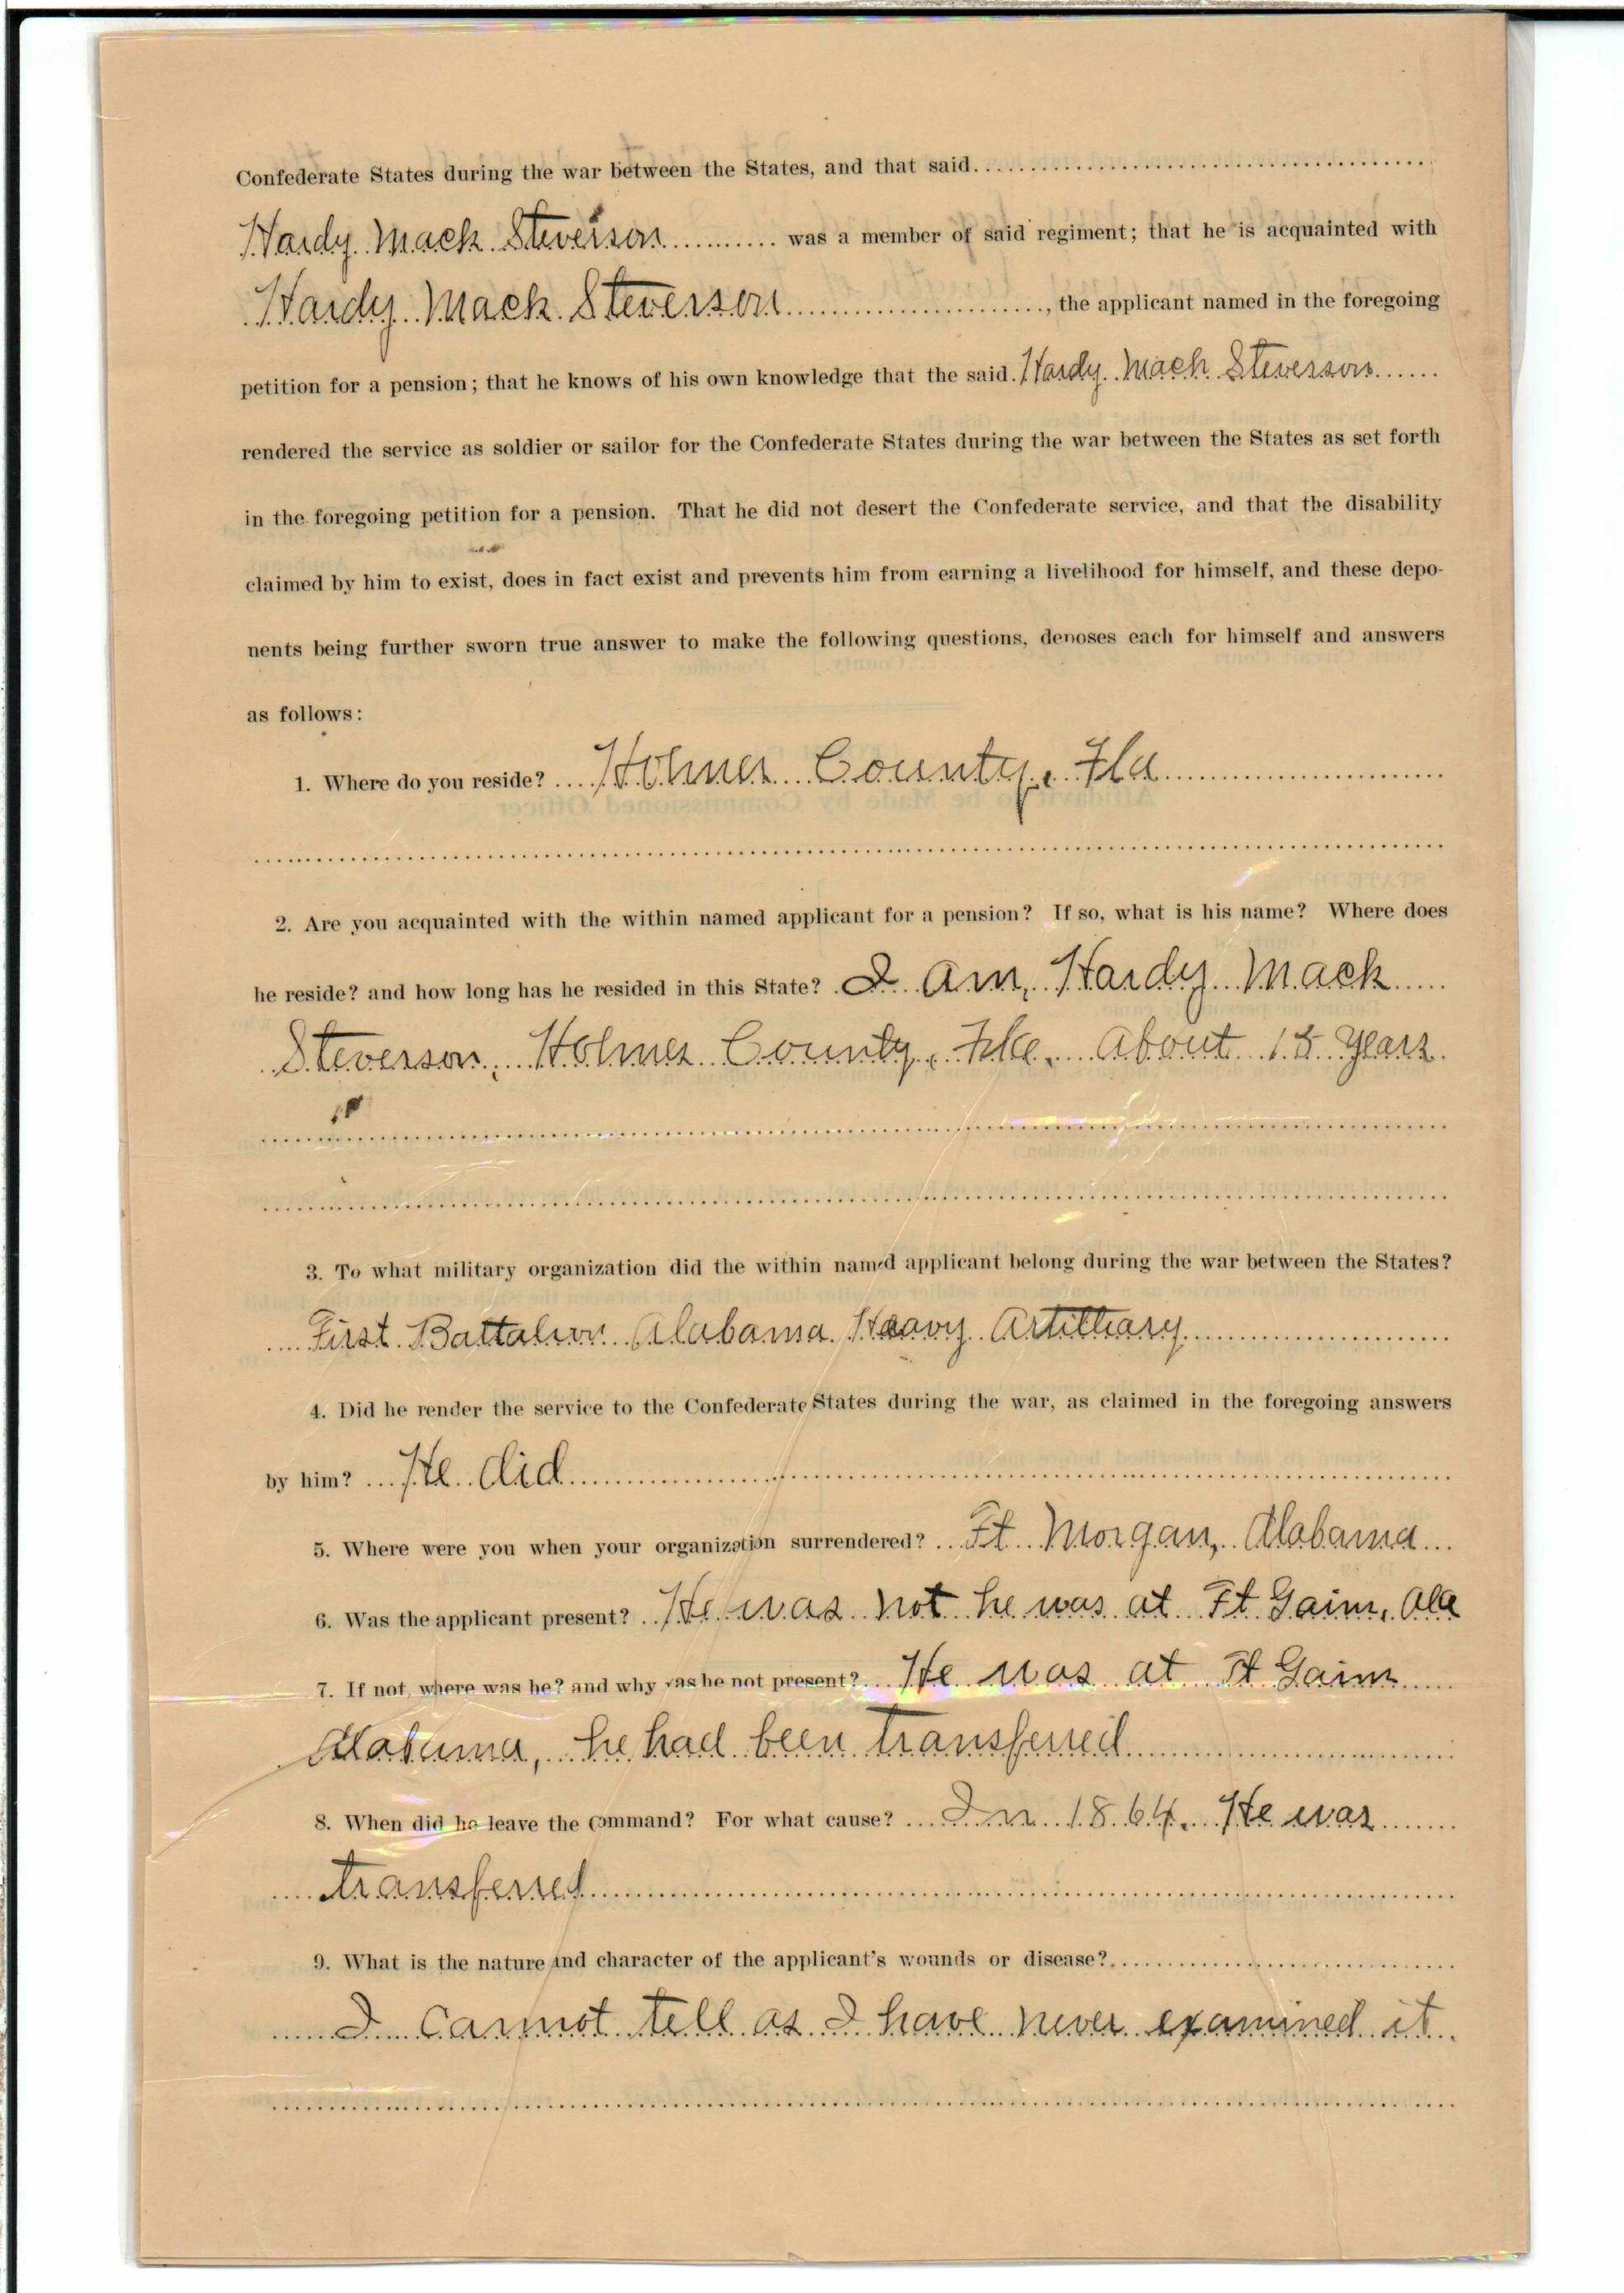 Confederate States during the war between the States, and that said
Hardy Mack Steverson was a member of said regiment; that he is acquainted with
Hardy Mack Steverson, the applicant named in the foregoing
petition for a pension; that he knows of his own knowledge that the said Hardy Mack Steverson
rendered the service as soldier or sailor for the Confederate States during the war between the States as set forth
in the foregoing petition for a pension. That he did not desert the Confederate service, and that the disability
claimed by him to exist, does in fact exist and prevents him from earning a livelihood for himself, and these depo-
nents being further sworn true answer to make the following questions, deposes each for himself and answers
as follows:
1. Where do you reside? Holmes County, Fla
2. Are you acquainted with the within named applicant for a pension? If so, what is his name? Where does
he reside? and how long has he resided in this State? I am, Hardy Mack
Steverson, Holmes County, Fla, about 15 years
3. To what military organization did the within named applicant belong during the war between the States?
First Battalion Alabama Heavy Artilliary
4. Did he render the service to the Confederate States during the war, as claimed in the foregoing answers
by him? He did
5. Where were you when your organization surrendered? Ft. Morgan, Alabama
6. Was the applicant present? He was not he was at Ft Gains, Ala
7. If not, where was he? and why was he not present? He was at Ft Gains
Alabama, he had been transferred
8. When did he leave the command? For what cause? In 1864. He was
transferred
9. What is the nature and character of the applicant's wounds or disease?
I cannot tell as I have never examined it